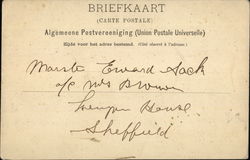 BRIEFKAART
(CARTE POSTALE)
Algemeene Postvereeniging (Union Postale Universelle)
Zijde voor het adres bestemd. (Côté réservé à l'adresse.)
Sack
c/o Mrs Brown
House
Sheffield